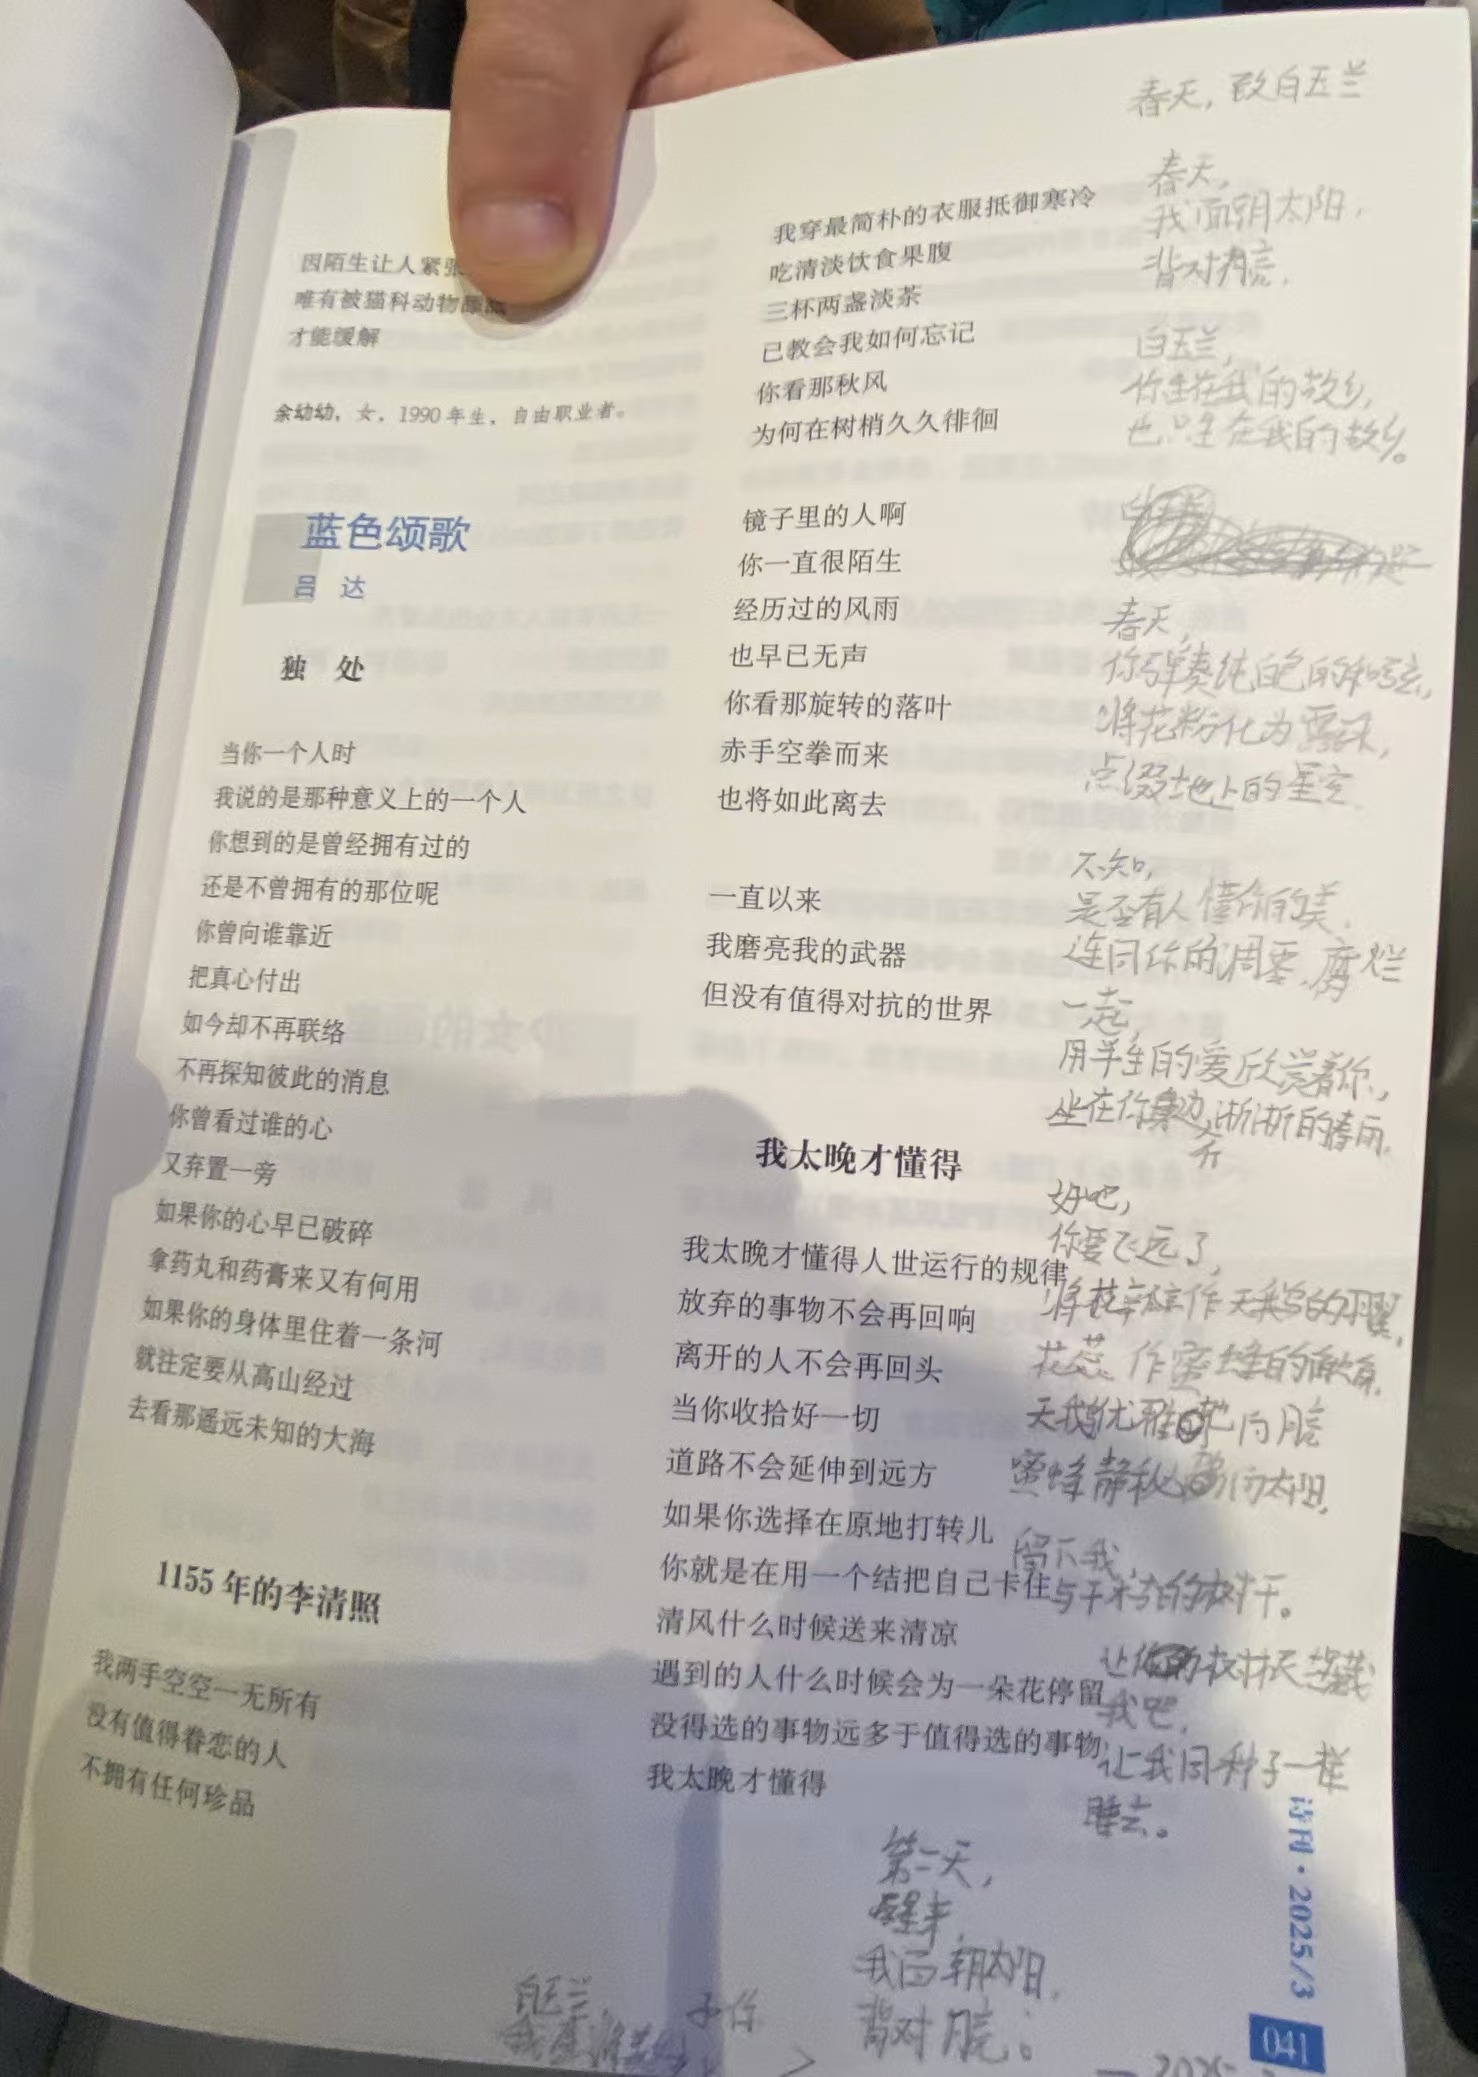 因陌生让人紧张
唯有被猫科动物
才能缓解
余幼幼，女，1990年生，自由职业者。
蓝色颂歌
吕 达
独 处
当你一个人时
我说的是那种意义上的一个人
你想到的是曾经拥有过的
还是不曾拥有的那位呢
你曾向谁靠近
把真心付出
如今却不再联络
不再探知彼此的消息
你曾看过谁的心
又弃置一旁
如果你的心早已破碎
拿药丸和药膏来又有何用
如果你的身体里住着一条河
就注定要从高山经过
去看那遥远未知的大海
1155年的李清照
我两手空空一无所有
没有值得眷恋的人
不拥有任何珍品
我穿最简朴的衣服抵御寒冷
吃清淡饮食果腹
三杯两盏淡茶
已教会我如何忘记
你看那秋风
为何在树梢久久徘徊
镜子里的人啊
你一直很陌生
经历过的风雨
也早已无声
你看那旋转的落叶
赤手空拳而来
也将如此离去
一直以来
我磨亮我的武器
但没有值得对抗的世界
我太晚才懂得
我太晚才懂得人世运行的规律
放弃的事物不会再回响
离开的人不会再回头
当你收拾好一切
道路不会延伸到远方
如果你选择在原地打转儿
你就是在用一个结把自己卡住
清风什么时候送来清凉
遇到的人什么时候会为一朵花停留
没得选的事物远多于值得选的事物
我太晚才懂得
春天，致白玉兰
春天，
我面朝太阳，
背对月亮。
白玉兰，
你生在我的故乡，
也只生在我的故乡。
春天，
你弹奏纯白色的和弦，
将花粉化为露水，
点缀地上的星空。
不知，
是否有人懂你的美，
连同你的凋零、腐烂
一起，
用半生的爱欣赏着你，
坐在你身边，听渐渐的春雨。
好吧，
你要飞远了，
将花瓣作天鹅的羽翼，
花蕊作蜜蜂的
天鹅优雅地飞向月亮
蜜蜂静秘 向太阳，
留下我，
与干枯的树干。
让你的树林埋藏
我吧，
让我同种子一样
睡去。
第二天，
醒来，
我面朝太阳，
背对月亮。
白玉兰，
于你
— 2025.
诗刊·2025/3
041